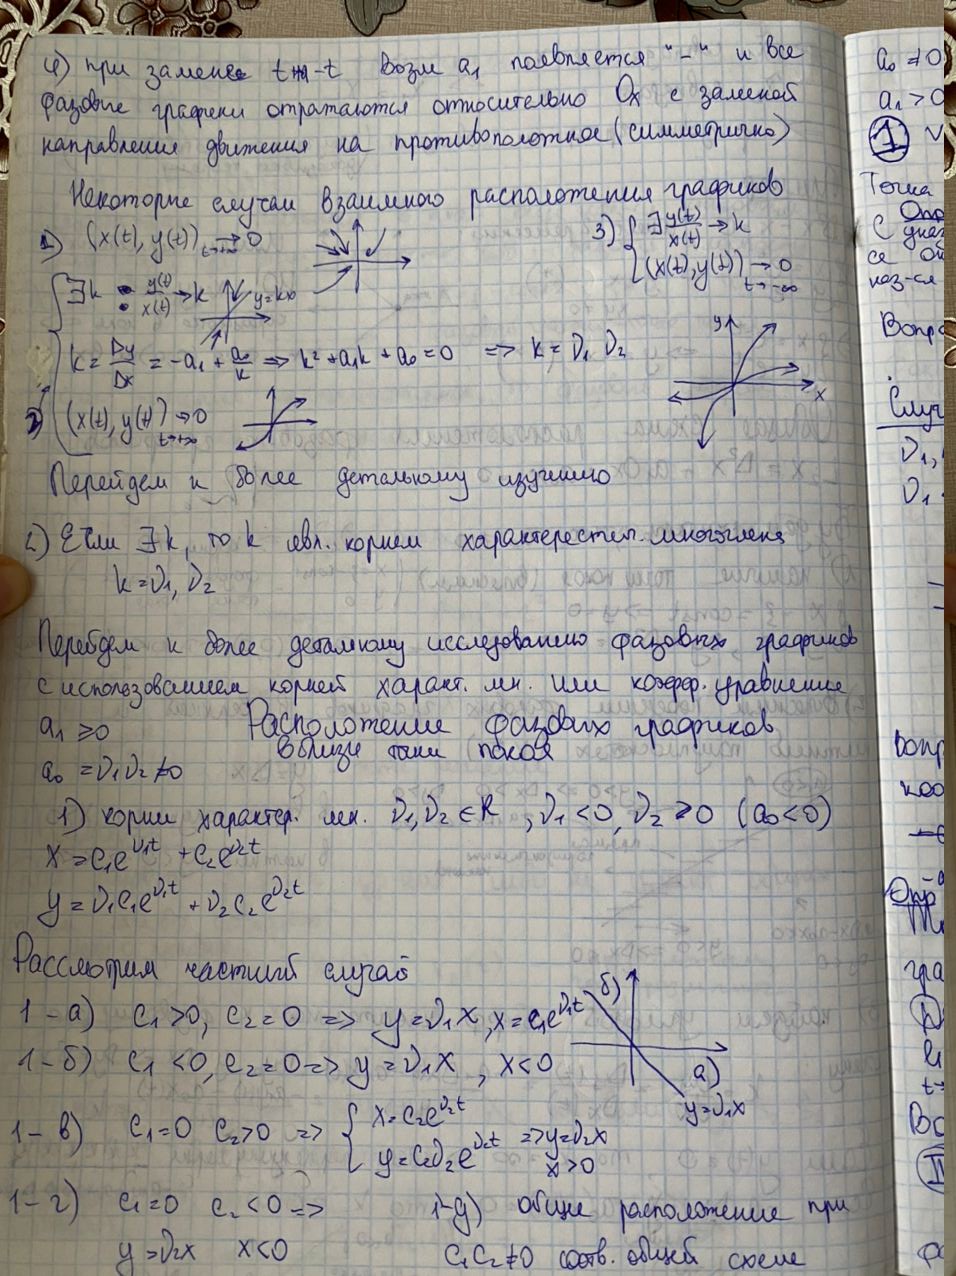 4) при замене t на -t возле a₁ появляется "-" и все
фазовые графики отражаются относительно Ox с заменой
направления движения на противоположное (симметрично)
Некоторые случаи взаимного расположения графиков
1) (x(t), y(t)) → 0
t→+∞
∃k : y(t)/x(t) → k
y=kx
k = Dy/Dx = -a₁ + a₀/k => k² + a₁k + a₀ = 0 => k = ν₁ ν₂
2) (x(t), y(t)) → 0
t→+∞
3) { ∃ y(t)/x(t) → k
(x(t), y(t)) → 0
t→-∞
y
x
Перейдем к более детальному изучению
2) Если ∃k, то k явл. корнем характерестич. многочлена
k = ν₁, ν₂
Перейдем к более детальному исследованию фазовых графиков
с использованием корней характ. мн. или коэфф. уравнения
a₁ ≥ 0 Расположение фазовых графиков
вблизи точки покоя
a₀ = ν₁ν₂ ≠ 0
1) корни характер. мн. ν₁, ν₂ ∈ R, ν₁ < 0, ν₂ > 0 (a₀ < 0)
x = c₁e^ν₁t + c₂e^ν₂t
y = ν₁c₁e^ν₁t + ν₂c₂e^ν₂t
Рассмотрим частный случай
1-а) c₁ > 0, c₂ = 0 => y = ν₁x, x = c₁e^ν₁t
1-б) c₁ < 0, c₂ = 0 => y = ν₁x, x < 0
б)
а)
y = ν₁x
1-в) c₁ = 0 c₂ > 0 => { x = c₂e^ν₂t
y = c₂ν₂e^ν₂t => y = ν₂x
x > 0
1-г) c₁ = 0 c₂ < 0 =>
y = ν₂x x < 0
1-д) общие расположение при
c₁c₂ ≠ 0 соотв. общей схеме
a₀ ≠ 0
a₁ > 0
①
Точка
С
се
наз-ся
Вопр
Случ
ν₁,
ν₁
Вопр
коо
Опр
гра
t→
Во